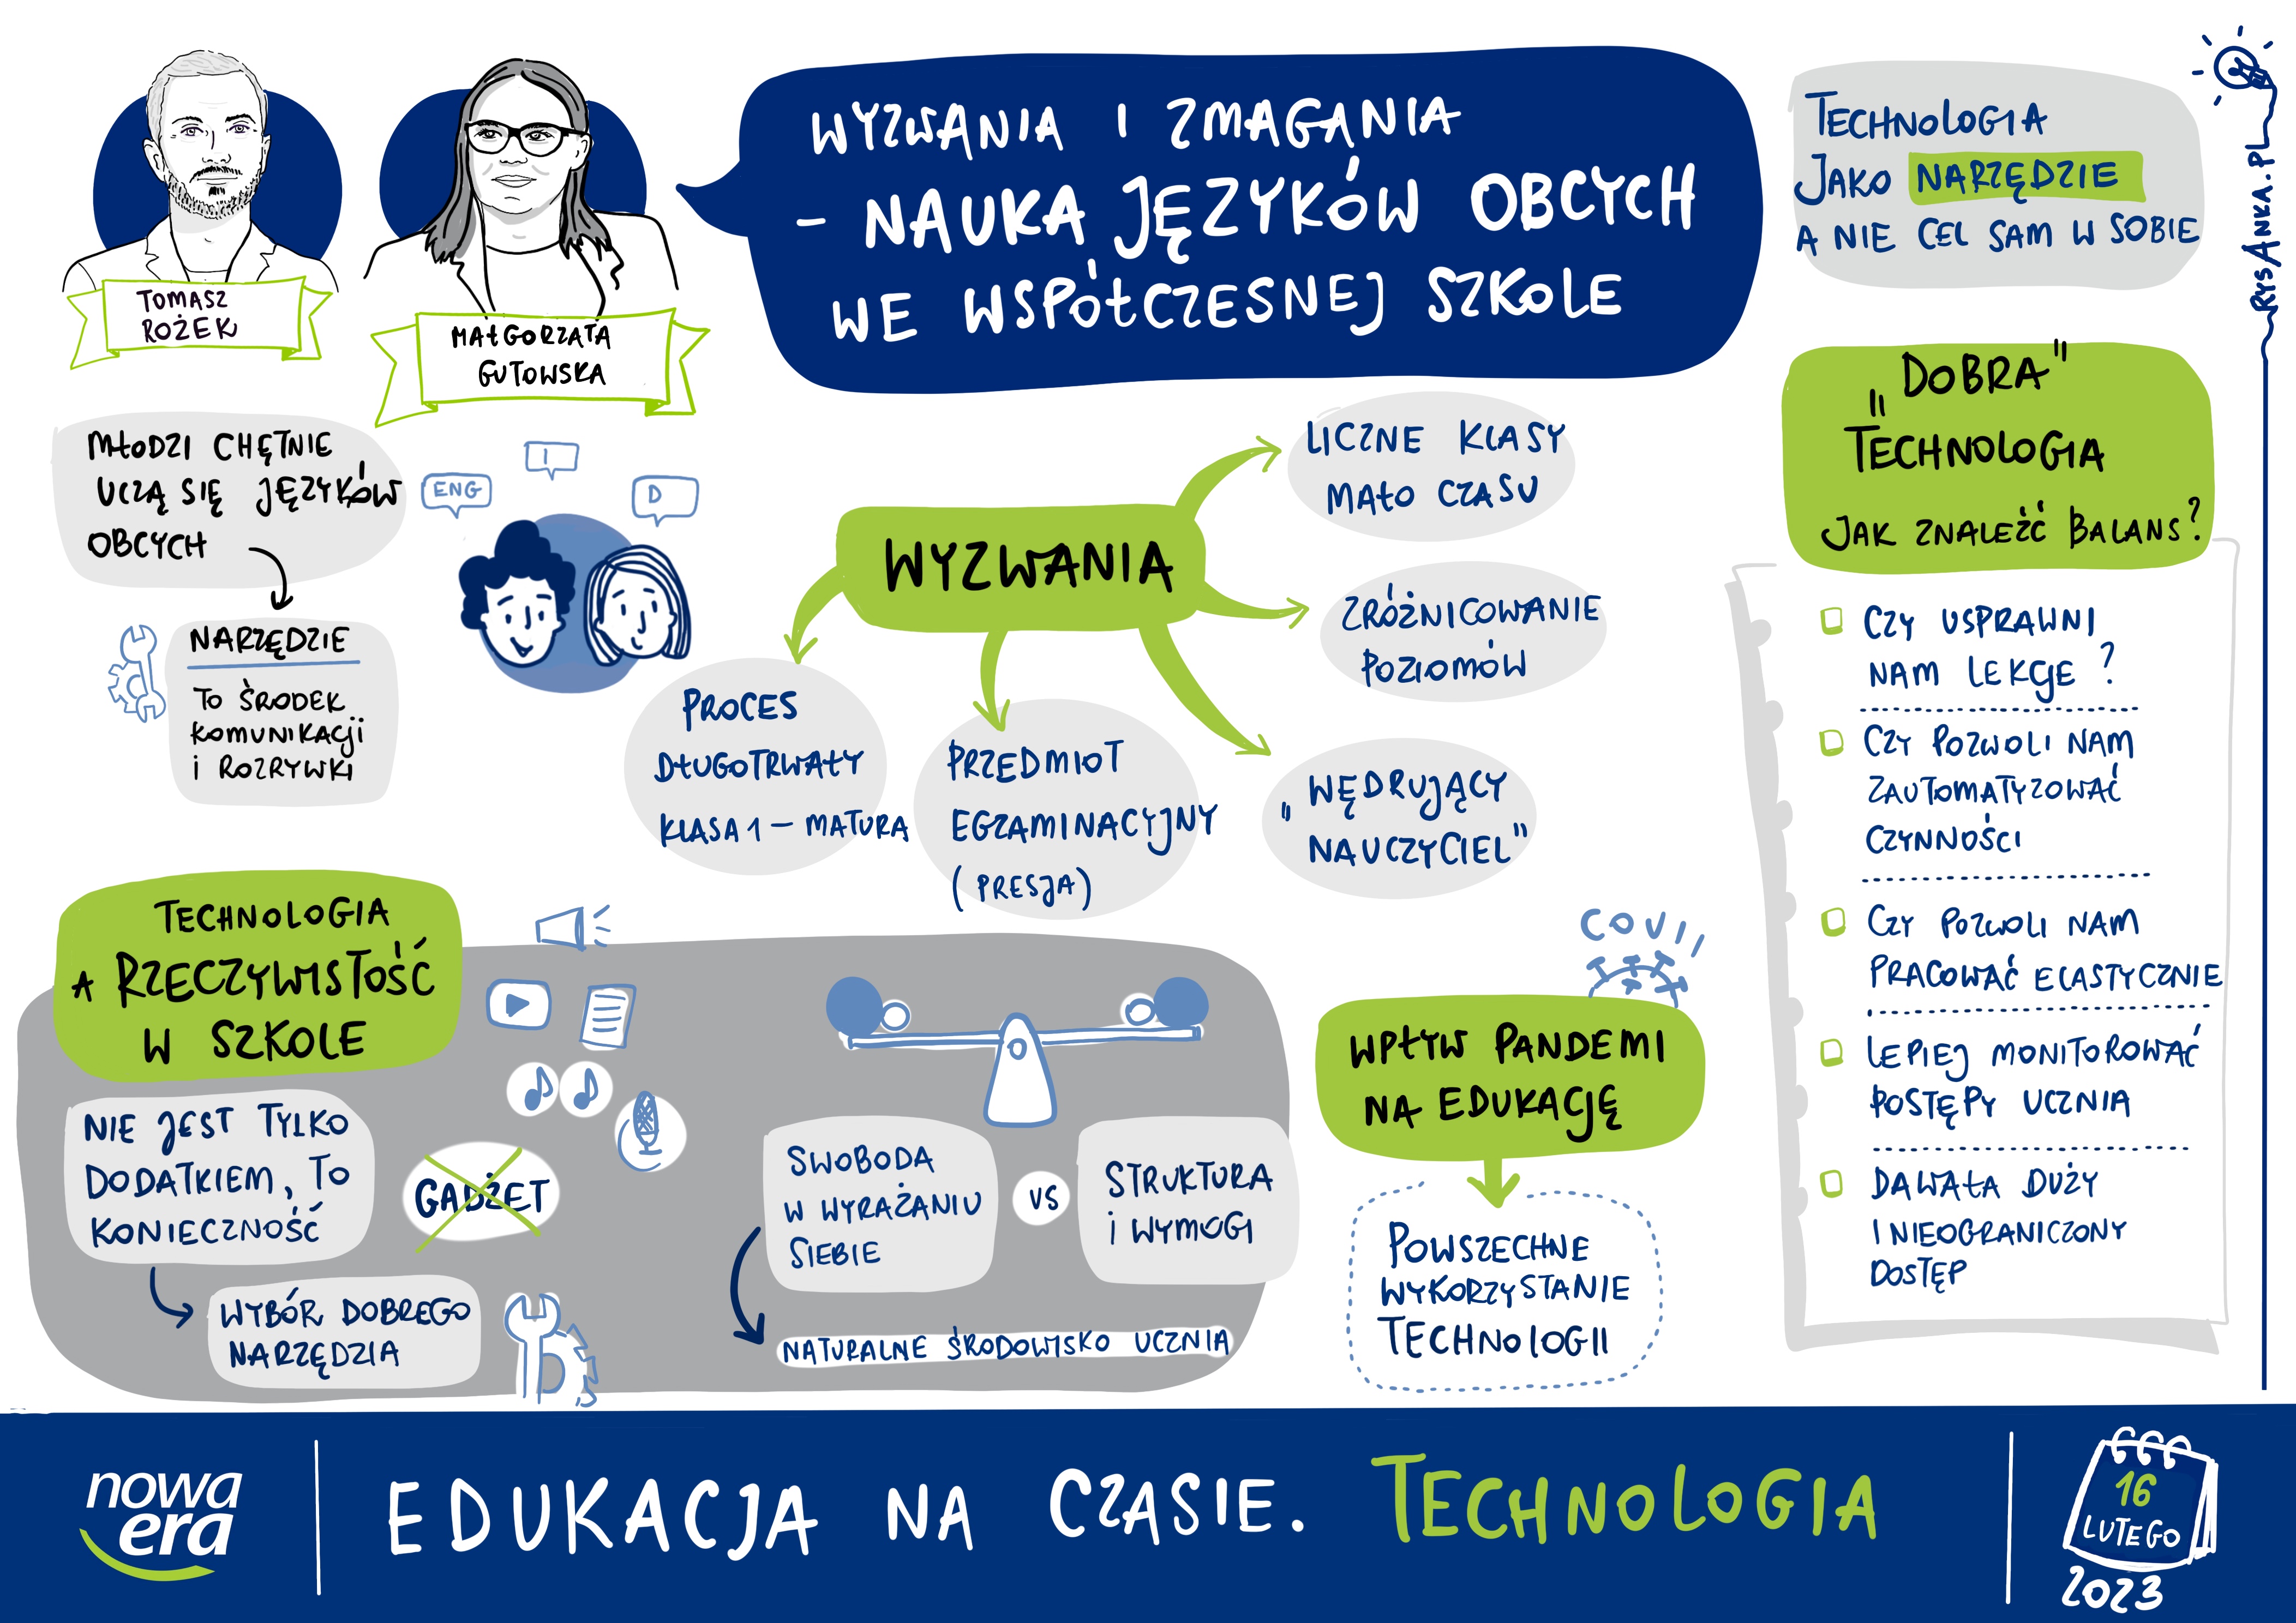 TOMASZ
ROŻEK
MAŁGORZATA
GUTOWSKA
WYZWANIA I ZMAGANIA
- NAUKA JĘZYKÓW OBCYCH
WE WSPÓŁCZESNEJ SZKOLE
TECHNOLOGIA
JAKO NARZĘDZIE
A NIE CEL SAM W SOBIE
RYSANKA.PL
MŁODZI CHĘTNIE
UCZĄ SIĘ JĘZYKÓW
OBCYCH
NARZĘDZIE
TO ŚRODEK
KOMUNIKACJI
I ROZRYWKI
ENG
I
D
WYZWANIA
LICZNE KLASY
MAŁO CZASU
ZRÓŻNICOWANIE
POZIOMÓW
„WĘDRUJĄCY
NAUCZYCIEL"
PRZEDMIOT
EGZAMINACYJNY
(PRESJA)
PROCES
DŁUGOTRWAŁY
KLASA 1 – MATURA
„DOBRA"
TECHNOLOGIA
JAK ZNALEŹĆ BALANS?
CZY USPRAWNI
NAM LEKCJE?
CZY POZWOLI NAM
ZAUTOMATYZOWAĆ
CZYNNOŚCI
CZY POZWOLI NAM
PRACOWAĆ ELASTYCZNIE
LEPIEJ MONITOROWAĆ
POSTĘPY UCZNIA
DAWAŁA DUŻY
I NIEOGRANICZONY
DOSTĘP
TECHNOLOGIA
A RZECZYWISTOŚĆ
W SZKOLE
NIE JEST TYLKO
DODATKIEM, TO
KONIECZNOŚĆ
WYBÓR DOBREGO
NARZĘDZIA
GADŻET
SWOBODA
W WYRAŻANIU
SIEBIE
VS
STRUKTURA
I WYMOGI
NATURALNE ŚRODOWISKO UCZNIA
WPŁYW PANDEMI
NA EDUKACJĘ
POWSZECHNE
WYKORZYSTANIE
TECHNOLOGII
nowa
era
EDUKACJA NA CZASIE. TECHNOLOGIA
16
LUTEGO
2023